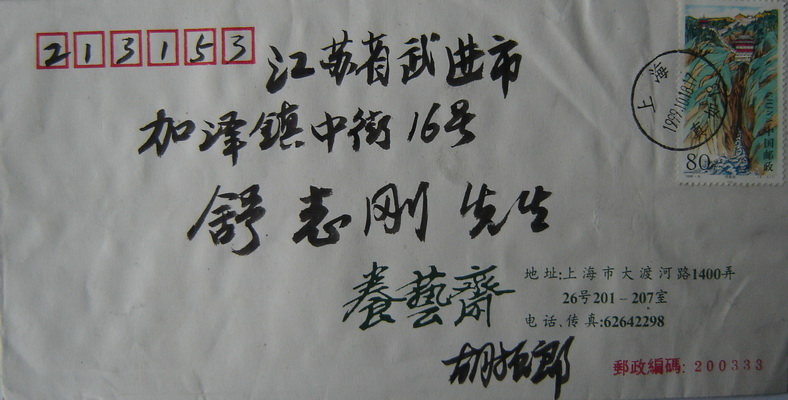 213153
江苏省武进市
加泽镇中街16号
舒志刚 先生
养艺斋
地址:上海市大渡河路1400弄
26号201－207室
电话、传真:62642298
胡振郎
郵政編碼: 200333
上海
1999.10.18
80
中国邮政